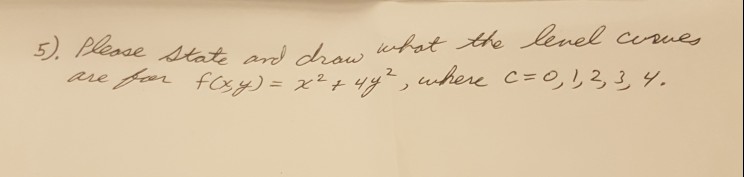 5). Please state and draw what the level curves
are for f(x,y) = x² + 4y², where C=0,1,2,3,4.